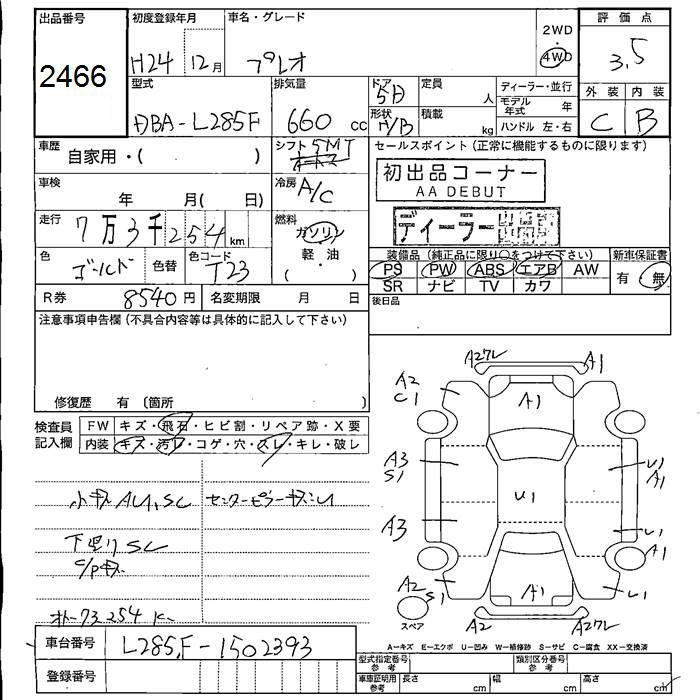 出品番号 初度登録年月 車名・グレード 評価点
2466 H24 12月 プレオ 2WD 4WD 3.5
型式 排気量 ドア 5D 定員 人 ディーラー・並行 外装 内装
DBA-L285F 660 cc 形状 H/B 積載 kg モデル年式 年 C B
ハンドル 左・右
車歴 自家用・( ) シフト 5MT セールスポイント(正常に機能するものに限ります)
初出品コーナー
AA DEBUT
車検 年 月( 日) 冷房 A/C
ディーラー
走行 7万3千254km 燃料 ガソリン
軽・油
( )
色 ゴールド 色替 色コード T23
装備品(純正品に限り○をつけて下さい) 新車保証書
PS PW ABS エアB AW 有 無
SR ナビ TV カワ
R券 8540円 名変期限 月 日 後日品
注意事項申告欄(不具合内容等は具体的に記入して下さい)
修復歴 有 〔箇所 〕
検査員記入欄 FW キズ・飛石・ヒビ割・リペア跡・X要
内装 キズ・汚レ・コゲ・穴・スレ・キレ・破レ
小キズ AU1,SC センターピラーキズ
下廻りSC
C/Pキズ
73254
車台番号 L285F-1502393
登録番号
A2ワレ A1
A2
C1
A1
A3
S1
U1
A1
U1
A3
U1
A1
A2
S1
A1
U1
A2 A2ワレ
スペア
A-キズ E-エクボ U-凹み W-補修跡 S-サビ C-腐食 XX-交換済
型式指定番号 参考 類別区分番号 参考
車庫証明用 参考 長さ cm 幅 cm 高さ cm